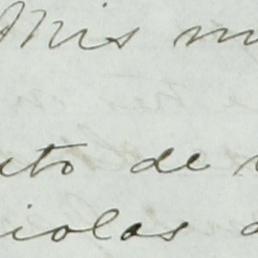 Mis m
uto de
iolas d